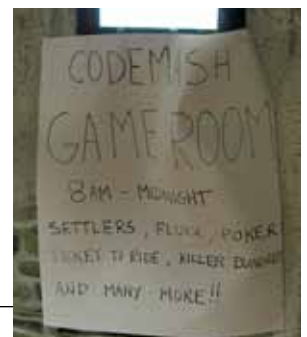 CODEMISH
GAME ROOM
8AM - MIDNIGHT
SETTLERS, FLUXX, POKER
TICKET TO RIDE, KILLER
AND MANY MORE!!